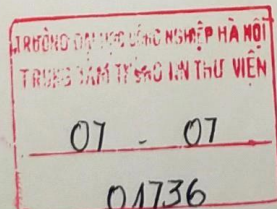 TRƯỜNG ĐẠI HỌC CÔNG NGHIỆP HÀ NỘI
TRUNG TÂM THÔNG TIN THƯ VIỆN
07 - 07
01736